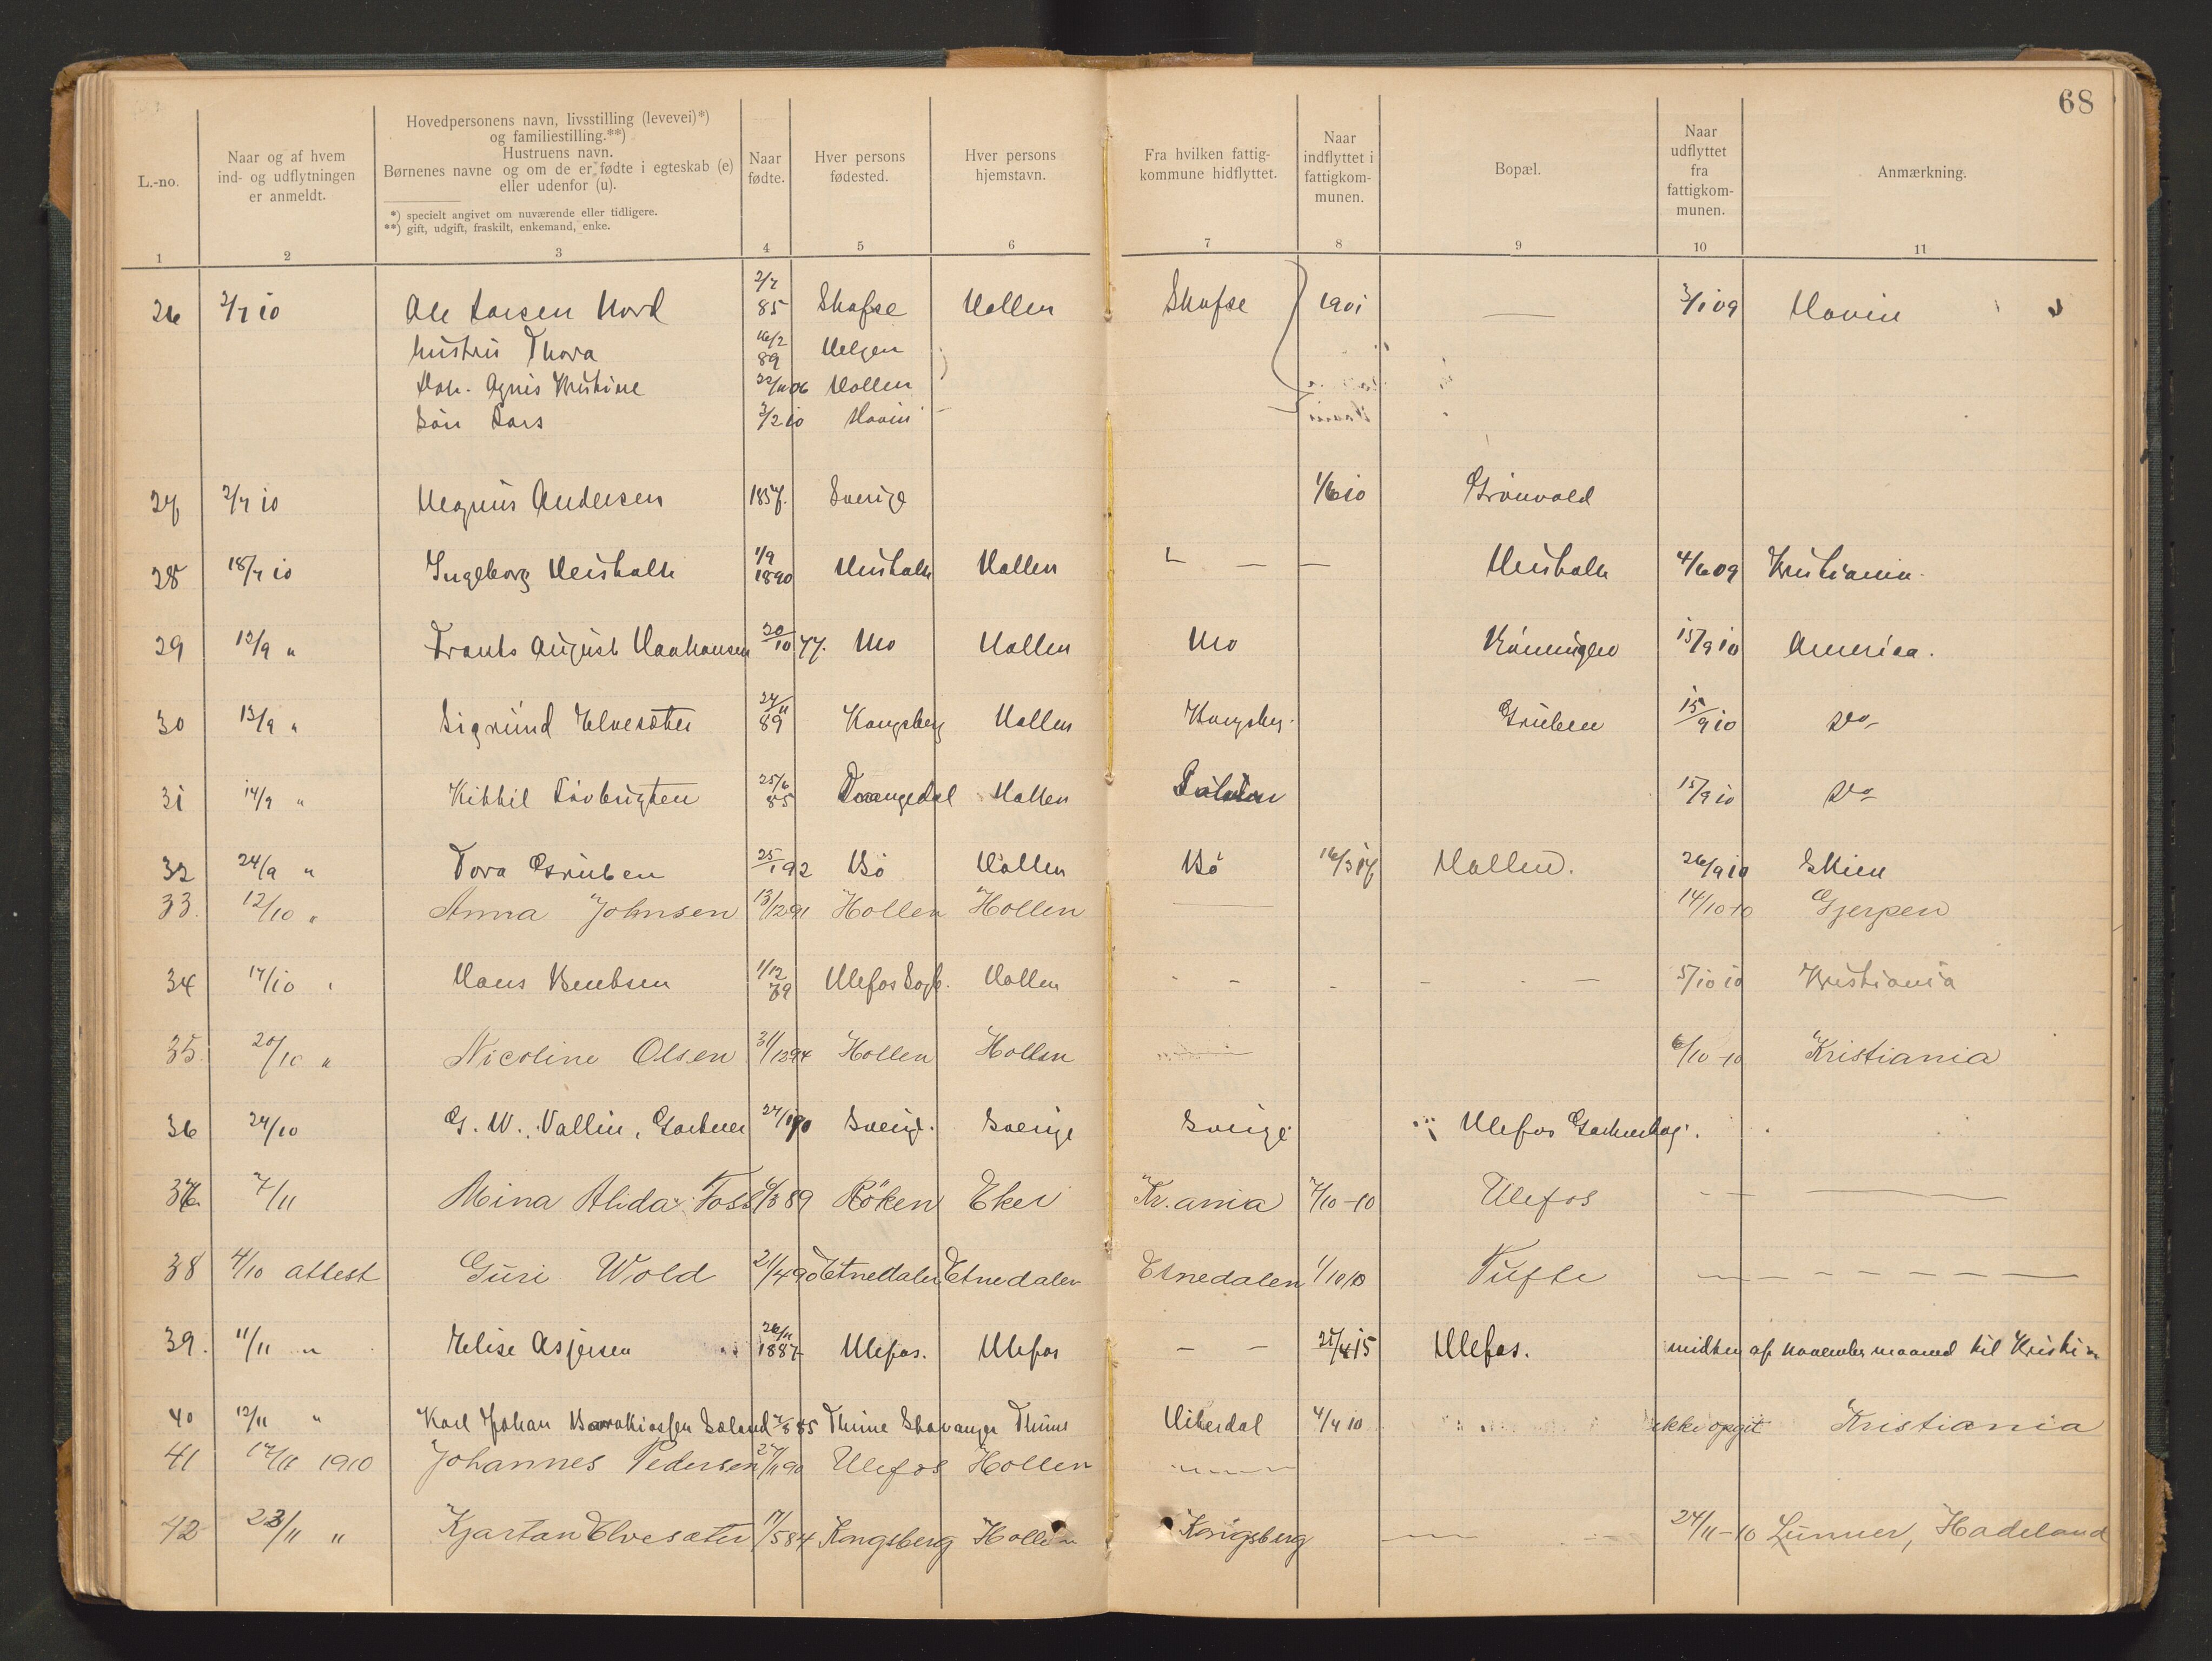 68
L.-no.
Naar og af hvem ind- og udflytningen er anmeldt.
Hovedpersonens navn, livsstilling (levevei)*) og familiestilling.**)
Hustruens navn.
Børnenes navne og om de er fødte i egteskab (e) eller udenfor (u).
*) specielt angivet om nuværende eller tidligere.
**) gift, udgift, fraskilt, enkemand, enke.
Naar fødte.
Hver persons fødested.
Hver persons hjemstavn.
Fra hvilken fattigkommune hidflyttet.
Naar indflyttet i fattigkommunen.
Bopæl.
Naar udflyttet fra fattigkommunen.
Anmærkning.
1 2 3 4 5 6 7 8 9 10 11
26 2/7 10 Ole Larsen Nord 85 Skafse Hollen Skafse 1901 — 3/1 09 Hovin
hustru Thora 16/2 89 Helgen
Agnis Kristine 22/11 06 Hollen
Søn Lars 3/2 10 Hovin
27 2/7 10 Magnus Andersen 1857. Sverige 1/6 10 Grønvold
28 18/7 10 Ingeborg 1/9 1890 Hollen 4/6 09 Kristiania.
29 12/9 " Frants August 20/10 77. Mo Hollen Mo 15/9 10 America.
30 13/9 " Sigrund Elvesæter 24/11 89 Kongsberg Hollen Kongsber. Gruben 15/9 10 Do
31 14/9 " Kittil 25/6 85 Drangedal Hollen 15/9 10 Do
32 24/9 " Tora Gruben 25/1 92 Bø Hollen Bø 16/3 07 Hollen. 26/9 10 Skien
33. 12/10 " Anna Johnsen 13/12 91 Hollen Hollen — 14/10 10 Gjerpen
34 17/10 " Hans Bentsen 1/12 79 Ulefos Hollen 5/10 10 Kristiania
35. 20/10 " Nicoline Olsen 31/12 94 Hollen Hollen 6/10-10 Kristiania
36 24/10 G. W. Vallin, Gartner 90 Sverige. Sverige Sverige Ulefos
37. 7/11 Mina Alida Foss 89 Røken Eker Kr.ania 7/10-10 Ulefos —
38 4/10 attest Guri Wold 21/4 90 Etnedalen Etnedalen Etnedalen 1/10 10 Tufte —
39. 11/11 " Elise Asjersen 26/11 1887 Ulefos. Ulefos — — Ulefos. midten af november maaned til Kristi
40 12/11 " Karl Johan Søland 7/8 85 Thime Stavanger Thime Hiterdal 4/4 10 ikke opgit Kristiania
41 17/11 1910 Johannes Pedersen 27/11 90 Ulefos Hollen
42 23/11 " Kjartan Elvesæter 17/5 84 Kongsberg Hollen Kongsberg — 24/11-10 Lunner, Hadeland